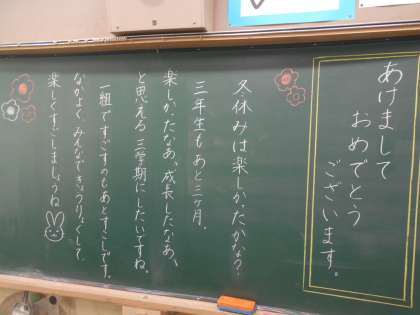 あけまして
おめでとう
ございます。
冬休みは楽しかったかな？
三年生もあと三ヶ月。
楽しかったなあ、成長したなあ、
と思える三学期にしたいですね。
一組ですごすのもあとすこしです。
なかよく、みんなできょうりょくして、
楽しくすごしましょうね